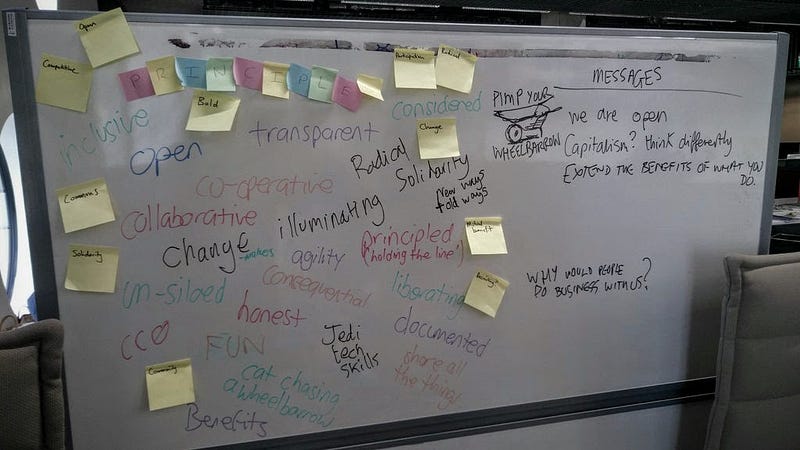 Open
Competitive
PRINCIPLE
Bold
Participation
Radical
inclusive
Open
transparent
considered
Change
Radical
Solidarity
New ways
+ old ways
co-operative
Commons
collaborative
illuminating
Change
-makers
agility
principled
("holding the line")
Mutual
benefit
Solidarity
un-siloed
consequential
liberating
honest
documented
CC0
FUN
Jedi
tech
skills
share all
the things!
Community
cat chasing
a wheelbarrow
Benefits
MESSAGES
PIMP YOUR
WHEELBARROW
we are open
Capitalism? think differently
EXTEND THE BENEFITS OF WHAT YOU
DO.
WHY WOULD PEOPLE
DO BUSINESS WITH US?